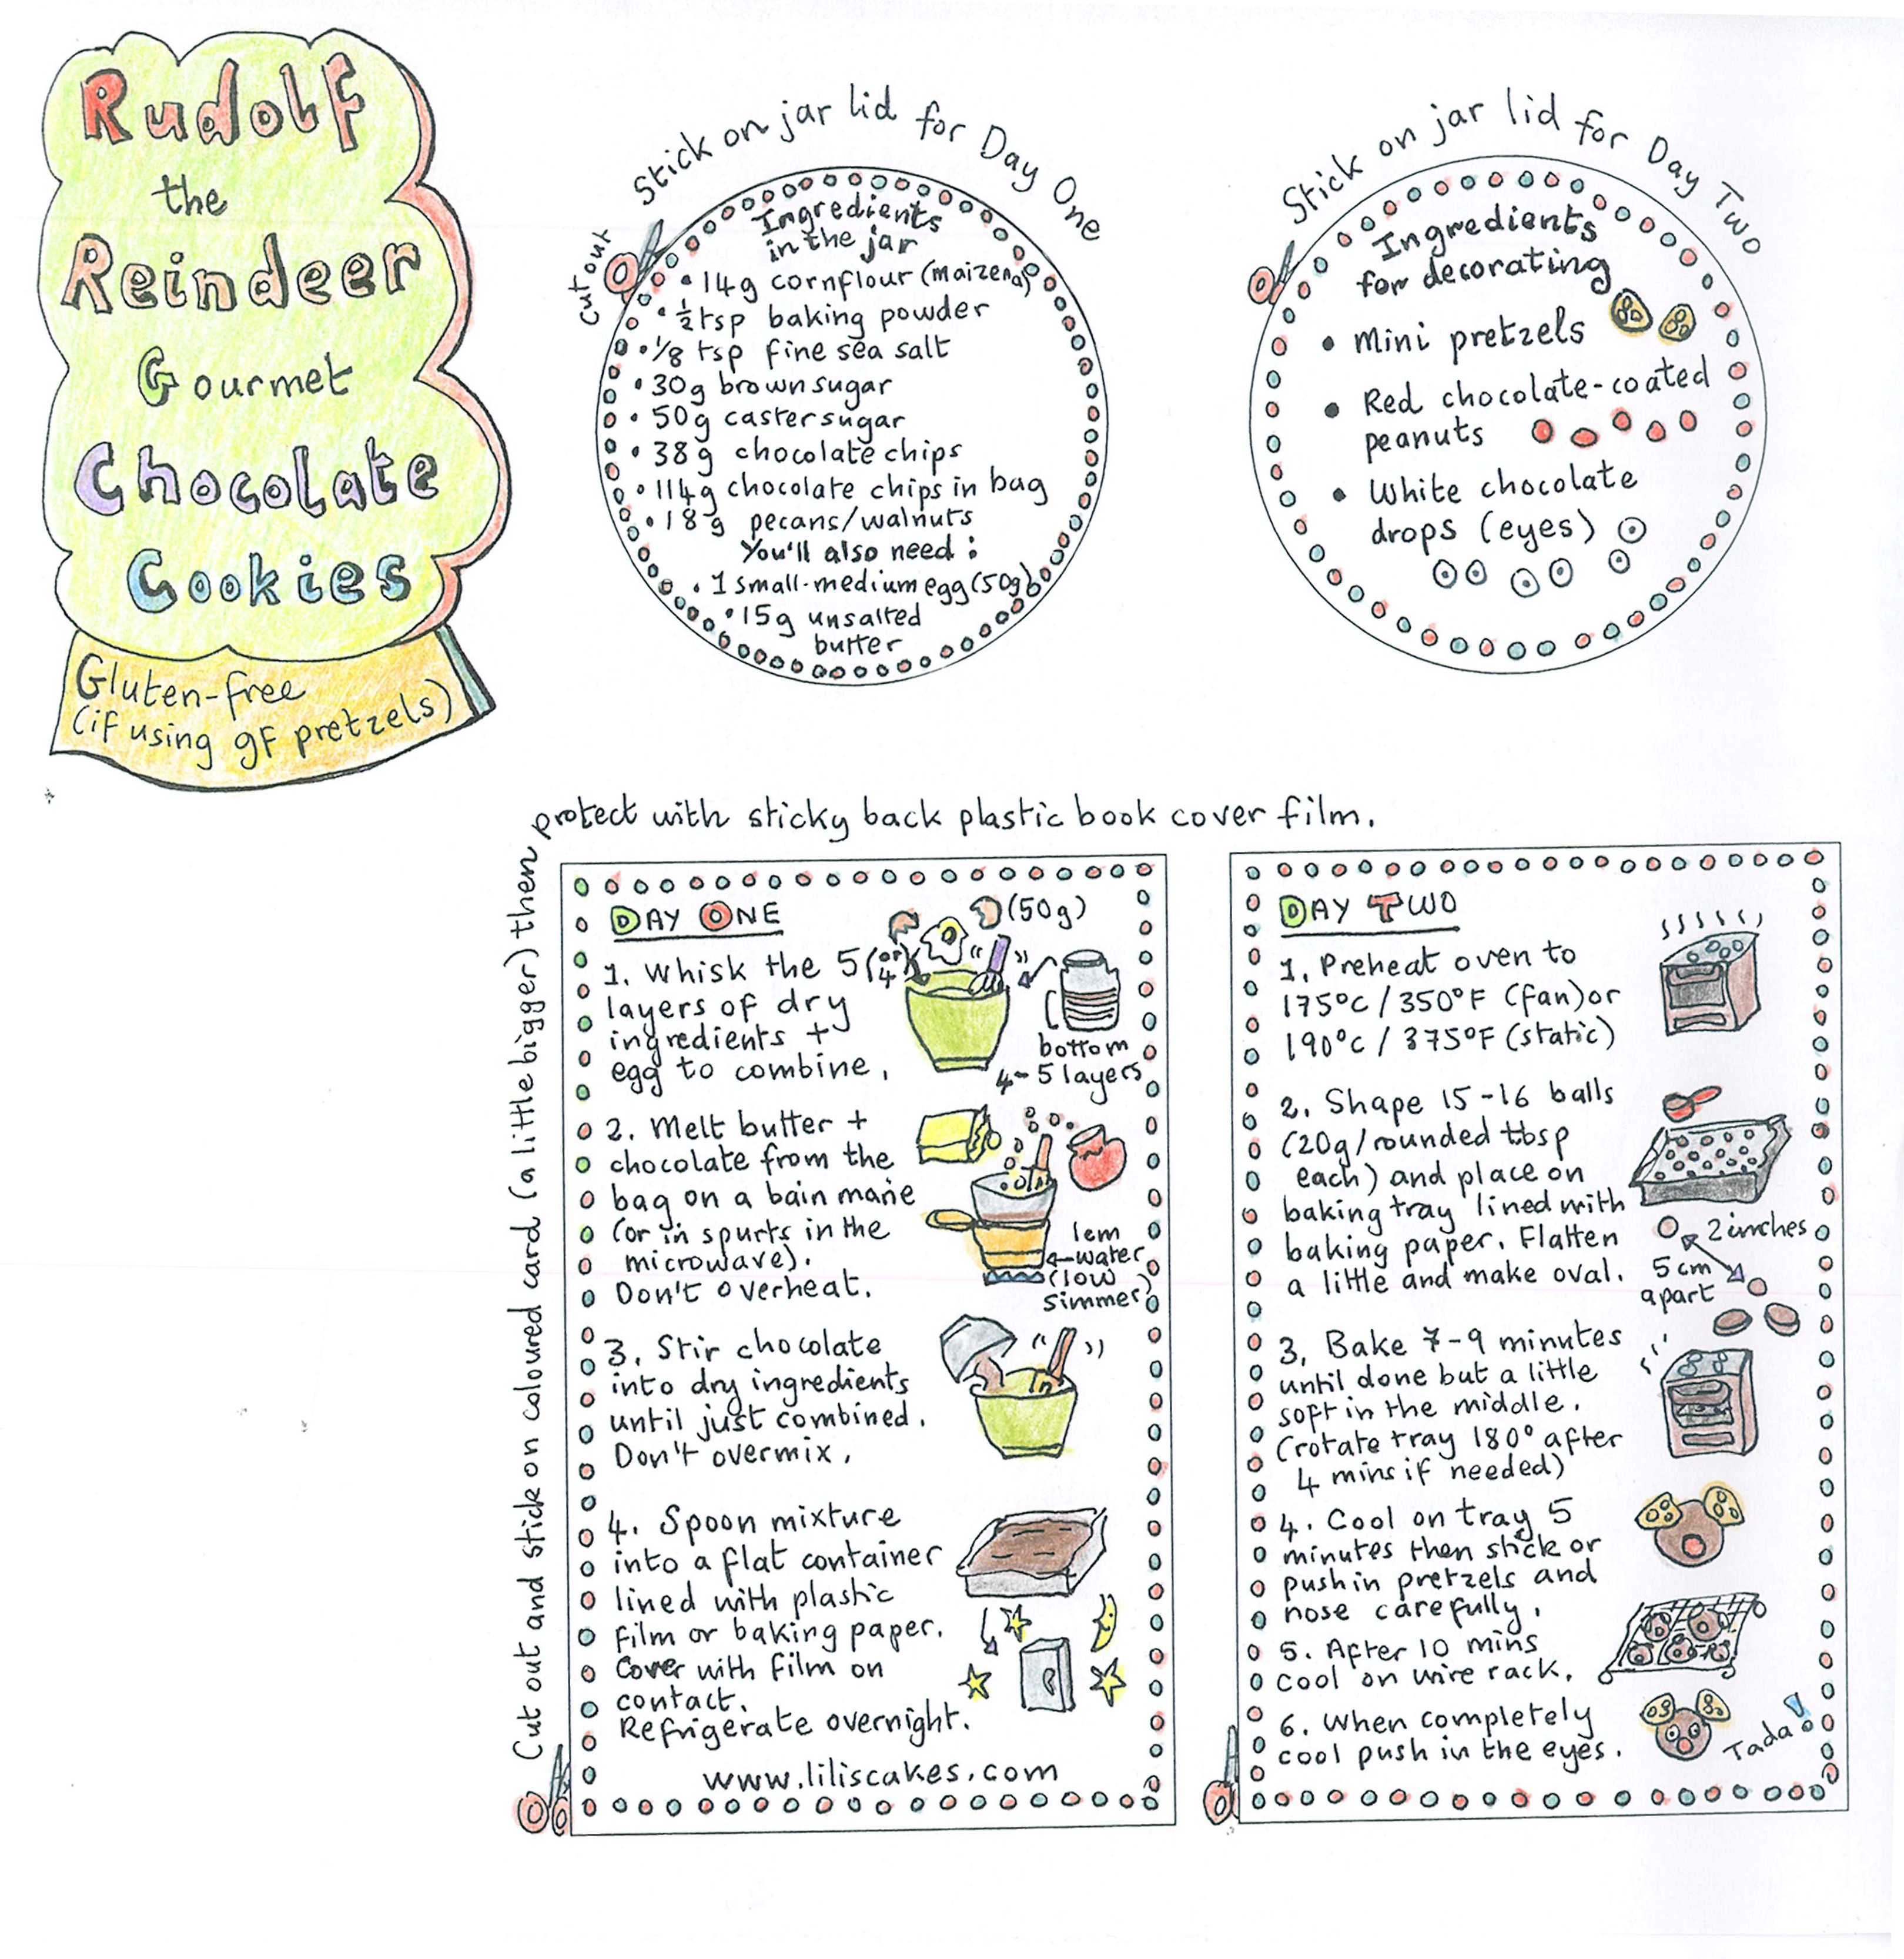 Rudolf
the
Reindeer
Gourmet
Chocolate
Cookies
Gluten-free
(if using gf pretzels)
Stick on jar lid for Day One
cut out
Ingredients
in the jar
• 14g cornflour (maizena)
• ½ tsp baking powder
• 1/8 tsp fine sea salt
• 30g brown sugar
• 50g caster sugar
• 38g chocolate chips
• 114g chocolate chips in bag
• 18g pecans/walnuts
You'll also need:
• 1 small-medium egg (50g)
• 15g unsalted
butter
Stick on jar lid for Day Two
Ingredients
for decorating
• Mini pretzels
• Red chocolate-coated
peanuts
• White chocolate
drops (eyes)
Cut out and stick on coloured card (a little bigger) then
protect with sticky back plastic book cover film.
DAY ONE
(50g)
1. Whisk the 5 (or 4)
layers of dry
ingredients +
egg to combine.
bottom
4-5 layers
2. Melt butter +
chocolate from the
bag on a bain marie
(or in spurts in the
microwave).
Don't overheat.
1cm
water
(low
simmer)
3. Stir chocolate
into dry ingredients
until just combined.
Don't overmix.
4. Spoon mixture
into a flat container
lined with plastic
film or baking paper.
Cover with film on
contact.
Refrigerate overnight.
www.liliscakes.com
DAY TWO
1. Preheat oven to
175°C / 350°F (fan) or
190°C / 375°F (static)
2. Shape 15-16 balls
(20g/rounded tbsp
each) and place on
baking tray lined with
baking paper. Flatten
a little and make oval.
2 inches
5 cm
apart
3. Bake 7-9 minutes
until done but a little
soft in the middle.
(rotate tray 180° after
4 mins if needed)
4. Cool on tray 5
minutes then stick or
push in pretzels and
nose carefully.
5. After 10 mins
cool on wire rack.
6. When completely
cool push in the eyes.
Tada!